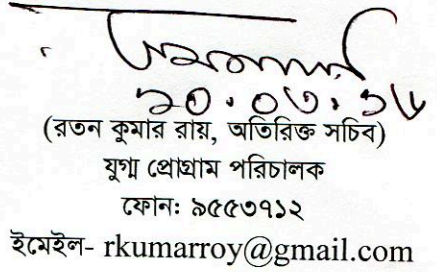 ২০.০৩.১৮
(রতন কুমার রায়, অতিরিক্ত সচিব)
যুগ্ম প্রোগ্রাম পরিচালক
ফোনঃ ৯৫৫৩৭১২
ইমেইল- rkumarroy@gmail.com